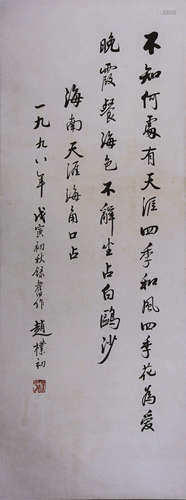 不知何處有天涯四季和風四季花為愛
晚霞餐海色不辭坐占白鷗沙
海南天涯海角口占
一九九八年戊寅初秋錄舊作
趙樸初